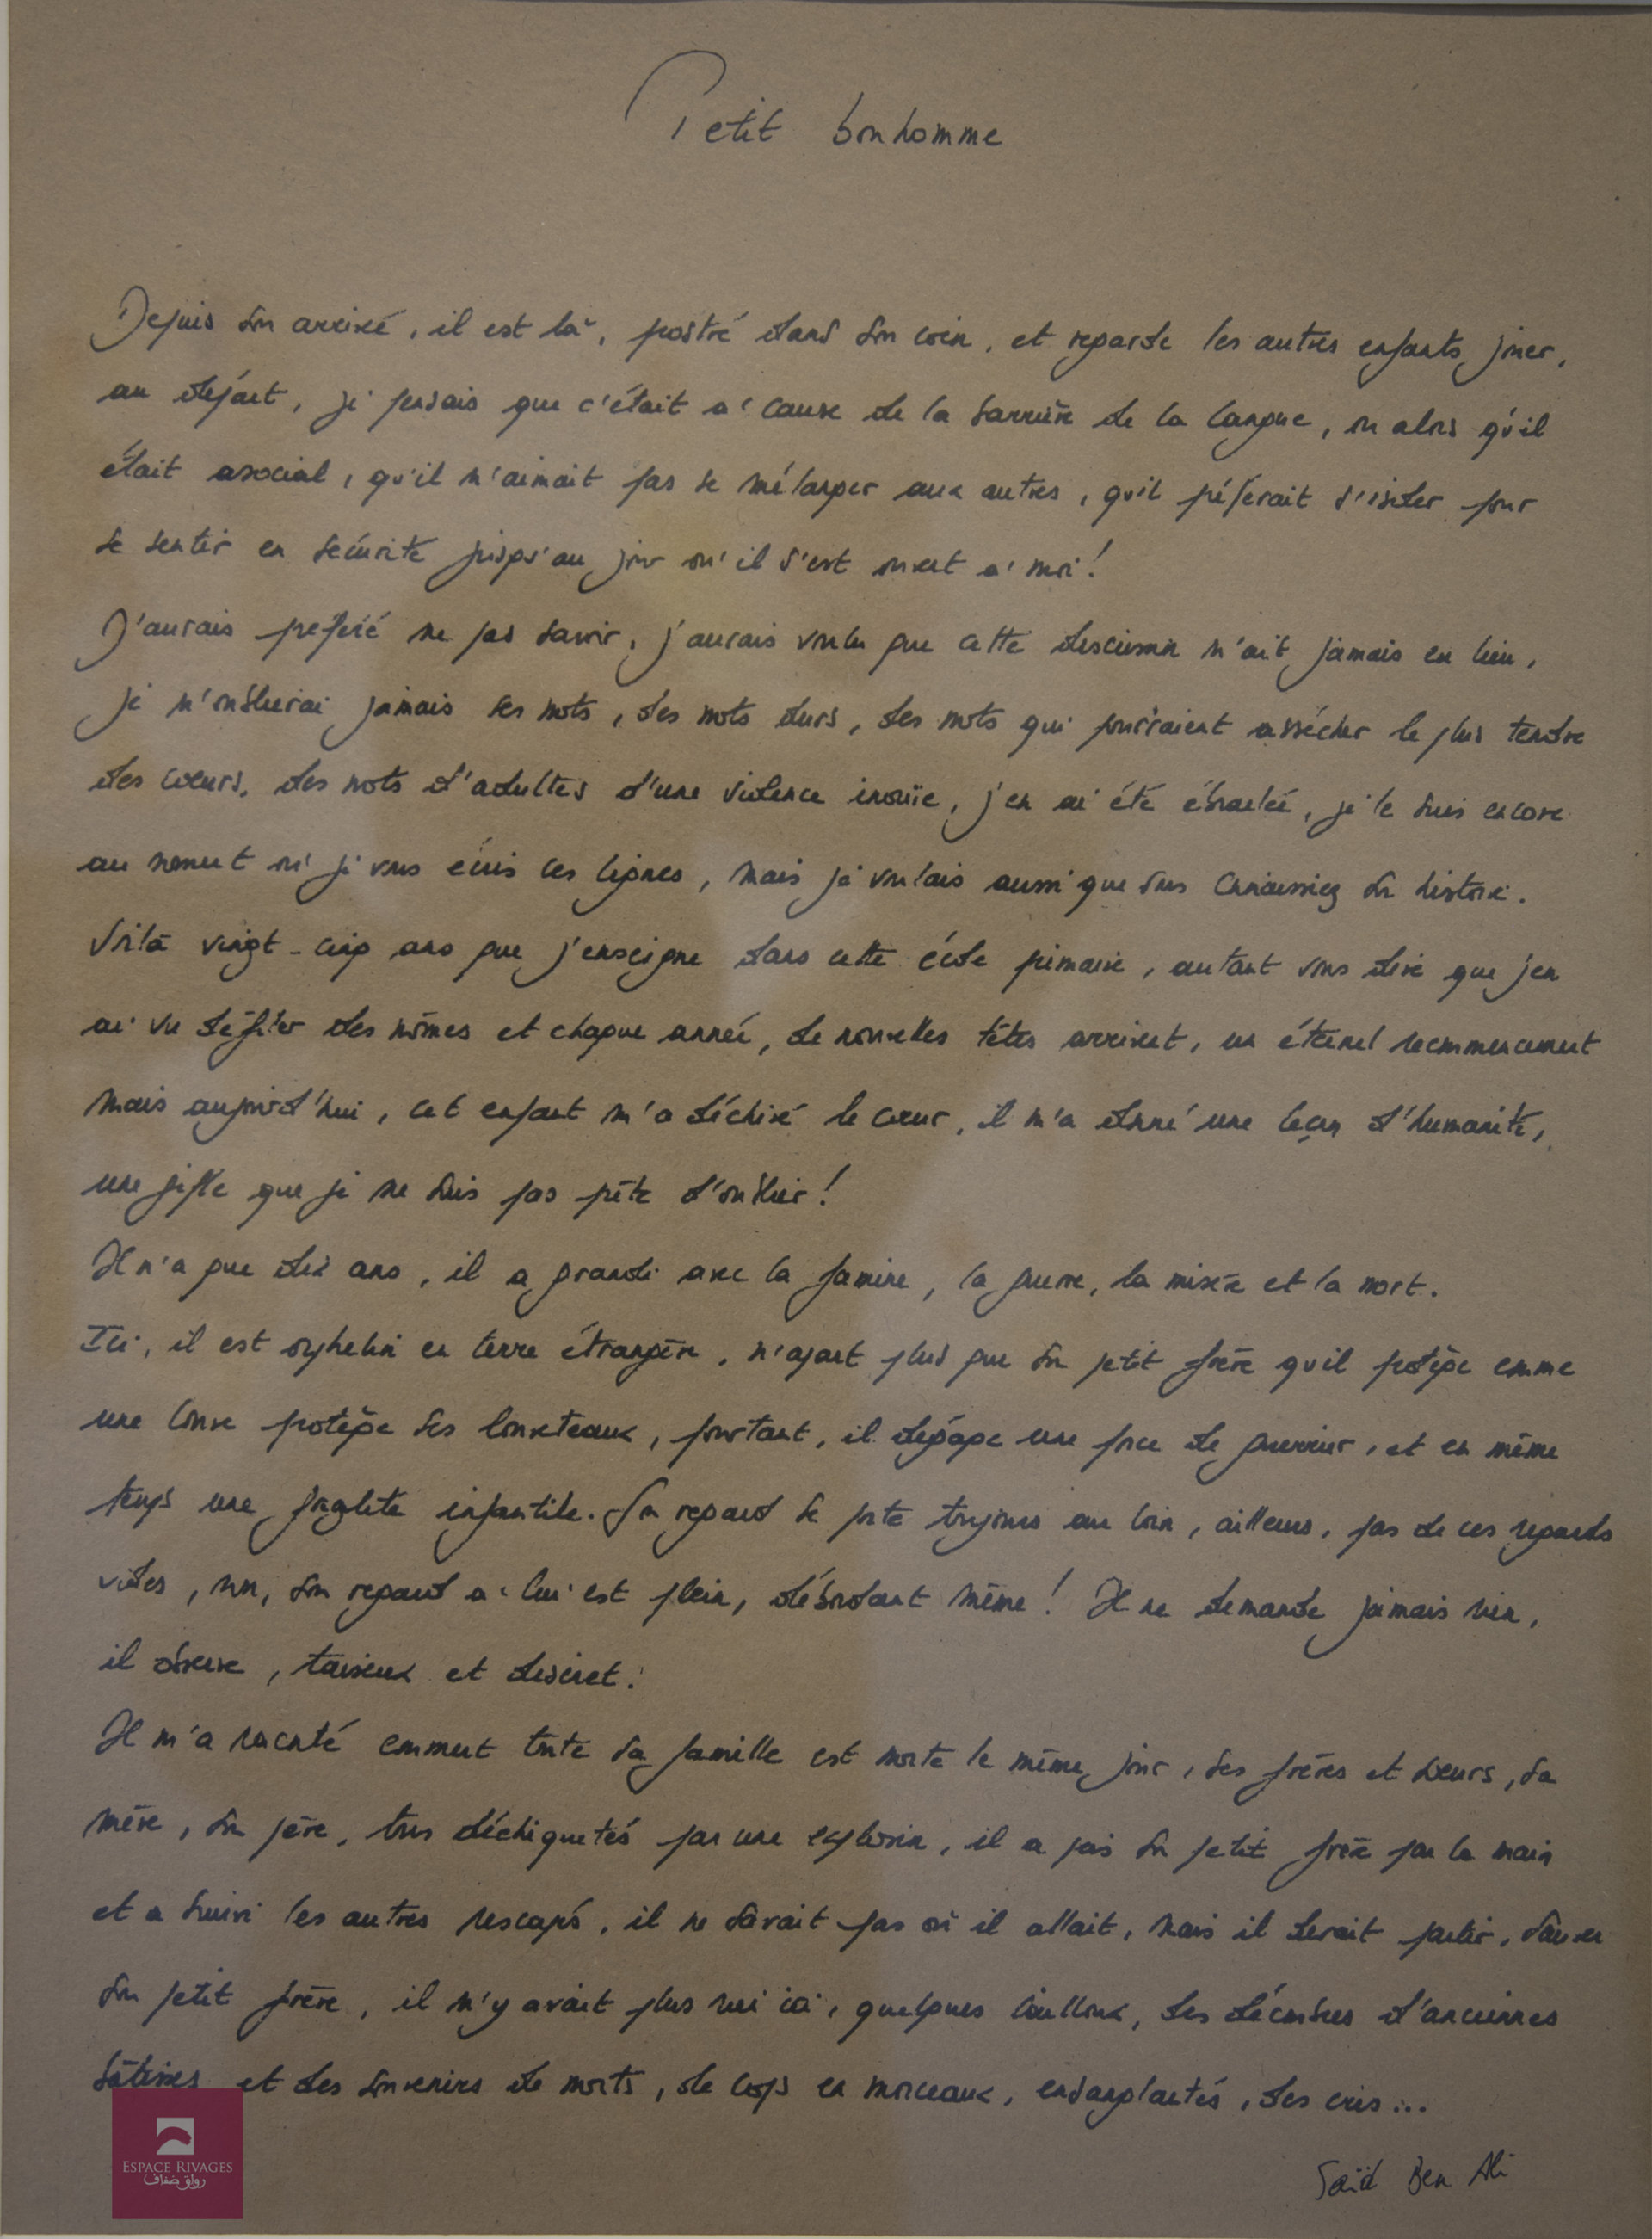 Petit bonhomme
Depuis son arrivé, il est là, postré dans son coin, et regarde les autres enfants jouer,
au départ, je pensais que c'était à cause de la barrière de la langue, ou alors qu'il
était asocial, qu'il n'aimait pas se mélanger aux autres, qu'il préferait s'isoler pour
se sentir en sécurité jusqu'au jour où il s'est ouvert à moi !
J'aurais préferé ne pas savoir, j'aurais voulu que cette discussion n'ait jamais eu lieu,
je n'oublierai jamais ses mots, des mots durs, des mots qui pourraient assécher le plus tendre
des cœurs, des mots d'adultes d'une violence inouïe, j'en ai été ébranlée, je le suis encore
au moment où je vous écris ces lignes, mais je voulais aussi que vous connaissiez son histoire.
Voilà vingt-cinq ans que j'enseigne dans cette école primaire, autant vous dire que j'en
ai vu défiler des mômes et chaque année, de nouvelles têtes arrivent, un éternel recommencement
mais aujourd'hui, cet enfant m'a déchiré le cœur, il m'a donné une leçon d'humanité,
une gifle que je ne suis pas prête d'oublier !
Il n'a que dix ans, il a grandi avec la famine, la guerre, la misère et la mort.
Ici, il est orphelin en terre étrangère, n'ayant plus que son petit frère qu'il protège comme
une louve protège ses louveteaux, pourtant, il dégage une force de guerrier, et en même
temps une fragilité infantile. Son regard se porte toujours au loin, ailleurs, pas de ces regards
vides, non, son regard à lui est plein, débordant même ! Il ne demande jamais rien,
il observe, taiseux et discret.
Il m'a raconté comment toute sa famille est morte le même jour, ses frères et sœurs, sa
mère, son père, tous déchiquetés par une explosion, il a pris son petit frère par la main
et a suivi les autres rescapés, il ne savait pas où il allait, mais il devait partir, sauver
son petit frère, il n'y avait plus rien ici, quelques cailloux, des décombres d'anciennes
bâtisses et des souvenirs de morts, de corps en morceaux, ensanglantés, des cris...
Saïd Ben Ali
ESPACE RIVAGES
رواق ضفاف